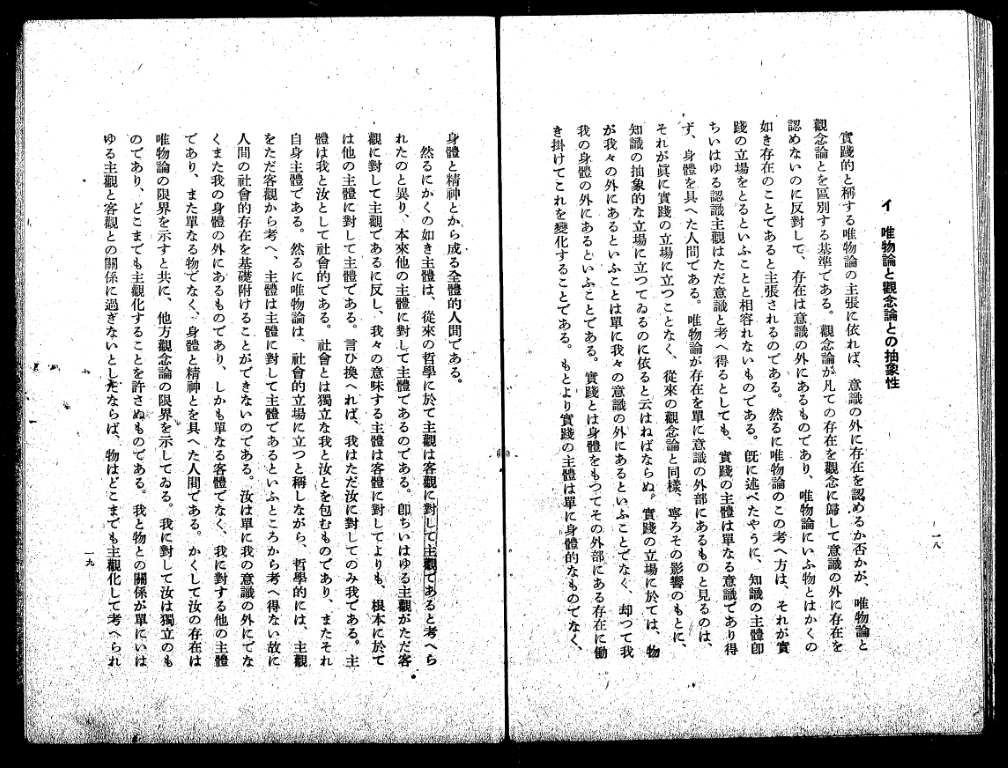 イ　唯物論と觀念論との抽象性
實踐的と稱する唯物論の主張に依れば、意識の外に存在を認めるか否かが、唯物論と
觀念論とを區別する基準である。觀念論が凡ての存在を觀念に歸して意識の外に存在を
認めないのに反對して、存在は意識の外にあるものであり、唯物論にいふ物とはかくの
如き存在のことであると主張されるのである。然るに唯物論のこの考へ方は、それが實
踐の立場をとるといふことと相容れないものである。既に述べたやうに、知識の主體卽
ちいはゆる認識主觀はただ意識と考へ得るとしても、實踐の主體は單なる意識であり得
ず、身體を具へた人間である。唯物論が存在を單に意識の外部にあるものと見るのは、
それが眞に實踐の立場に立つことなく、從來の觀念論と同樣、寧ろその影響のもとに、
知識の抽象的な立場に立つてゐるのに依ると云はねばならぬ。實踐の立場に於ては、物
が我々の外にあるといふことは單に我々の意識の外にあるといふことでなく、却つて我
我の身體の外にあるといふことである。實踐とは身體をもつてその外部にある存在に働
き掛けてこれを變化することである。もとより實踐の主體は單に身體的なものでなく、
一八
身體と精神とから成る全體的人間である。
然るにかくの如き主體は、從來の哲學に於て主觀は客觀に對して主觀であると考へら
れたのと異り、本來他の主體に對して主體であるのである。卽ちいはゆる主觀がただ客
觀に對して主觀であるに反し、我々の意味する主體は客體に對してよりも、根本に於て
は他の主體に對して主體である。言ひ換へれば、我はただ汝に對してのみ我である。主
體は我と汝として社會的である。社會とは獨立な我と汝とを包むものであり、またそれ
自身主體である。然るに唯物論は、社會的立場に立つと稱しながら、哲學的には、主觀
をただ客觀から考へ、主體は主體に對して主體であるといふところから考へ得ない故に
人間の社會的存在を基礎附けることができないのである。汝は單に我の意識の外にでな
くまた我の身體の外にあるものであり、しかも單なる客體でなく、我に對する他の主體
であり、また單なる物でなく、身體と精神とを具へた人間である。かくして汝の存在は
唯物論の限界を示すと共に、他方觀念論の限界を示してゐる。我に對して汝は獨立のも
のであり、どこまでも主觀化することを許さぬものである。我と物との關係が單にいは
ゆる主觀と客觀との關係に過ぎないとしたならば、物はどこまでも主觀化して考へられ
一九